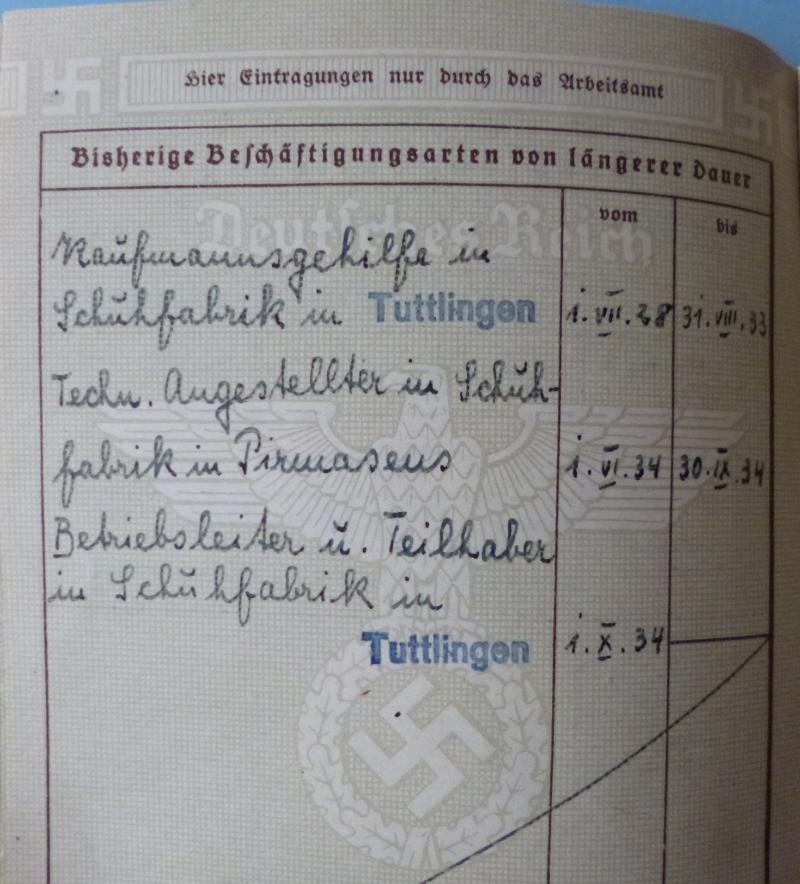 Hier Eintragungen nur durch das Arbeitsamt
Bisherige Beschäftigungsarten von längerer Dauer
vom
bis
Deutsches Reich
Kaufmannsgehilfe in
Schuhfabrik in Tuttlingen 1. VII. 28 31. VIII. 33
Techn. Angestellter in Schuh-
fabrik in Pirmasens 1. VI. 34 30. IX. 34
Betriebsleiter u. Teilhaber
in Schuhfabrik in
Tuttlingen 1. X. 34